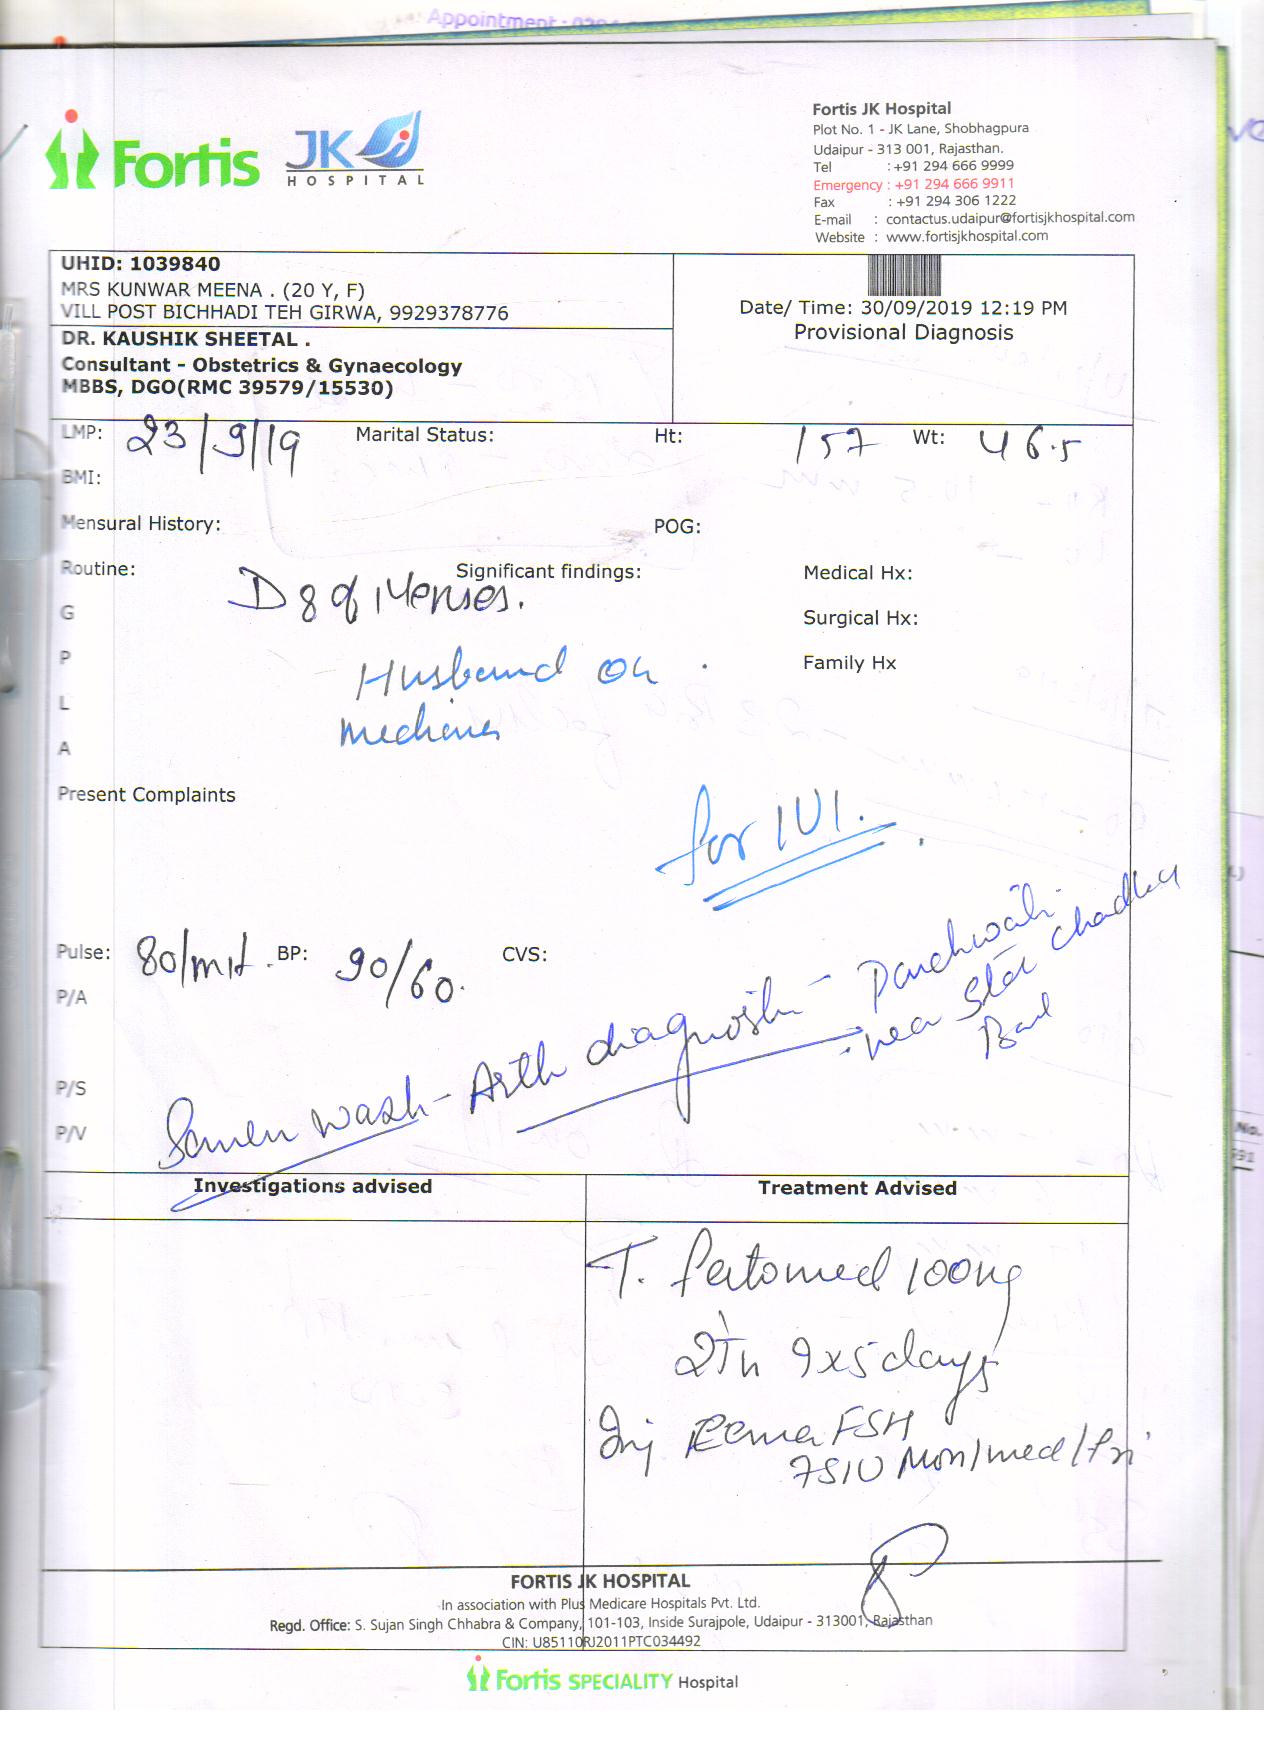 Appointment :
Fortis JK
HOSPITAL
Fortis JK Hospital
Plot No. 1 - JK Lane, Shobhagpura
Udaipur - 313 001, Rajasthan.
Tel : +91 294 666 9999
Emergency : +91 294 666 9911
Fax : +91 294 306 1222
E-mail : contactus.udaipur@fortisjkhospital.com
Website : www.fortisjkhospital.com
UHID: 1039840
MRS KUNWAR MEENA . (20 Y, F)
VILL POST BICHHADI TEH GIRWA, 9929378776
DR. KAUSHIK SHEETAL .
Consultant - Obstetrics & Gynaecology
MBBS, DGO(RMC 39579/15530)
Date/ Time: 30/09/2019 12:19 PM
Provisional Diagnosis
LMP: 23/9/19 Marital Status: Ht: 157 Wt: 46.5
BMI:
Mensural History: POG:
Routine: Significant findings: Medical Hx:
D8 of Menses.
G Surgical Hx:
P Husband on Family Hx
L
medicines
A
Present Complaints
for IUI.
Pulse: 80/mit. BP: 90/60. CVS:
P/A
Semen wash - Arth diagnostic - Panchwati
near Star Chadha
P/S
P/V
Investigations advised Treatment Advised
T. 100mg
9x5 days
Inj FSH
75IU Mon/Wed/Fri
FORTIS JK HOSPITAL
In association with Plus Medicare Hospitals Pvt. Ltd.
Regd. Office: S. Sujan Singh Chhabra & Company, 101-103, Inside Surajpole, Udaipur - 313001, Rajasthan
CIN: U85110RJ2011PTC034492
Fortis SPECIALITY Hospital
No.